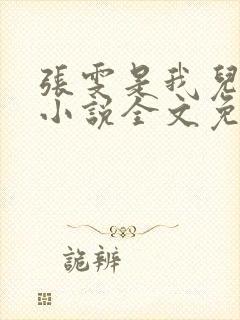 張雯是我兒
小說全文免
詭辨